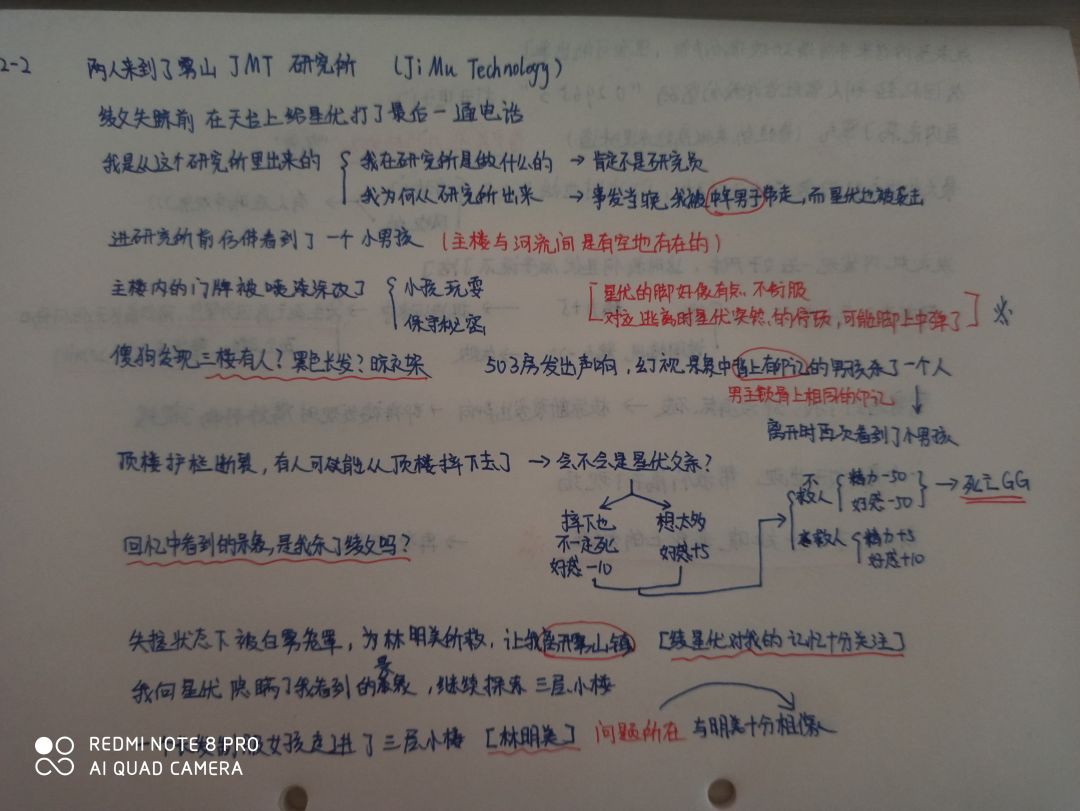 2-2 两人来到了雾山 JMT 研究所 (Ji Mu Technology)
绫父失踪前 在天台上 给星优打了最后一通电话
我是从这个研究所里出来的 { 我在研究所是做什么的 → 肯定不是研究员
我为何从研究所出来 → 事发当晚,我被中年男子带走,而星优也被袭击
进研究所前仿佛看到了一个小男孩 (主楼与河流间是有空地存在的)
主楼内的门牌被喷漆涂改了 { 小孩玩耍
保守秘密
[ 星优的脚好像有点不舒服
对应逃离时星优突然的停顿,可能脚上中弹了 ] ※
傻狗发现三楼有人?黑色长发?晾衣架
503房发出声响,幻视景象中背上有印记的男孩杀了一个人
男主锁骨上相同的印记
离开时再次看到了小男孩
顶楼护栏断裂,有人可能从顶楼摔下去了 → 会不会是星优父亲?
摔下也
不一定死
好感 -10
想太多
好感+5
不救人 { 精力 -50
好感 -50 } → 死亡GG
救人 { 精力+5
好感+10
回忆中看到的景象,是我杀了绫父吗?
失控状态下被白雾笼罩,为林明美所救,让我离开雾山镇 [绫星优对我的记忆十分关注]
我向星优隐瞒了我看到的景象,继续探索三层小楼
女孩走进了三层小楼 [林明美] 问题所在 与明美十分相像
REDMI NOTE 8 PRO
AI QUAD CAMERA